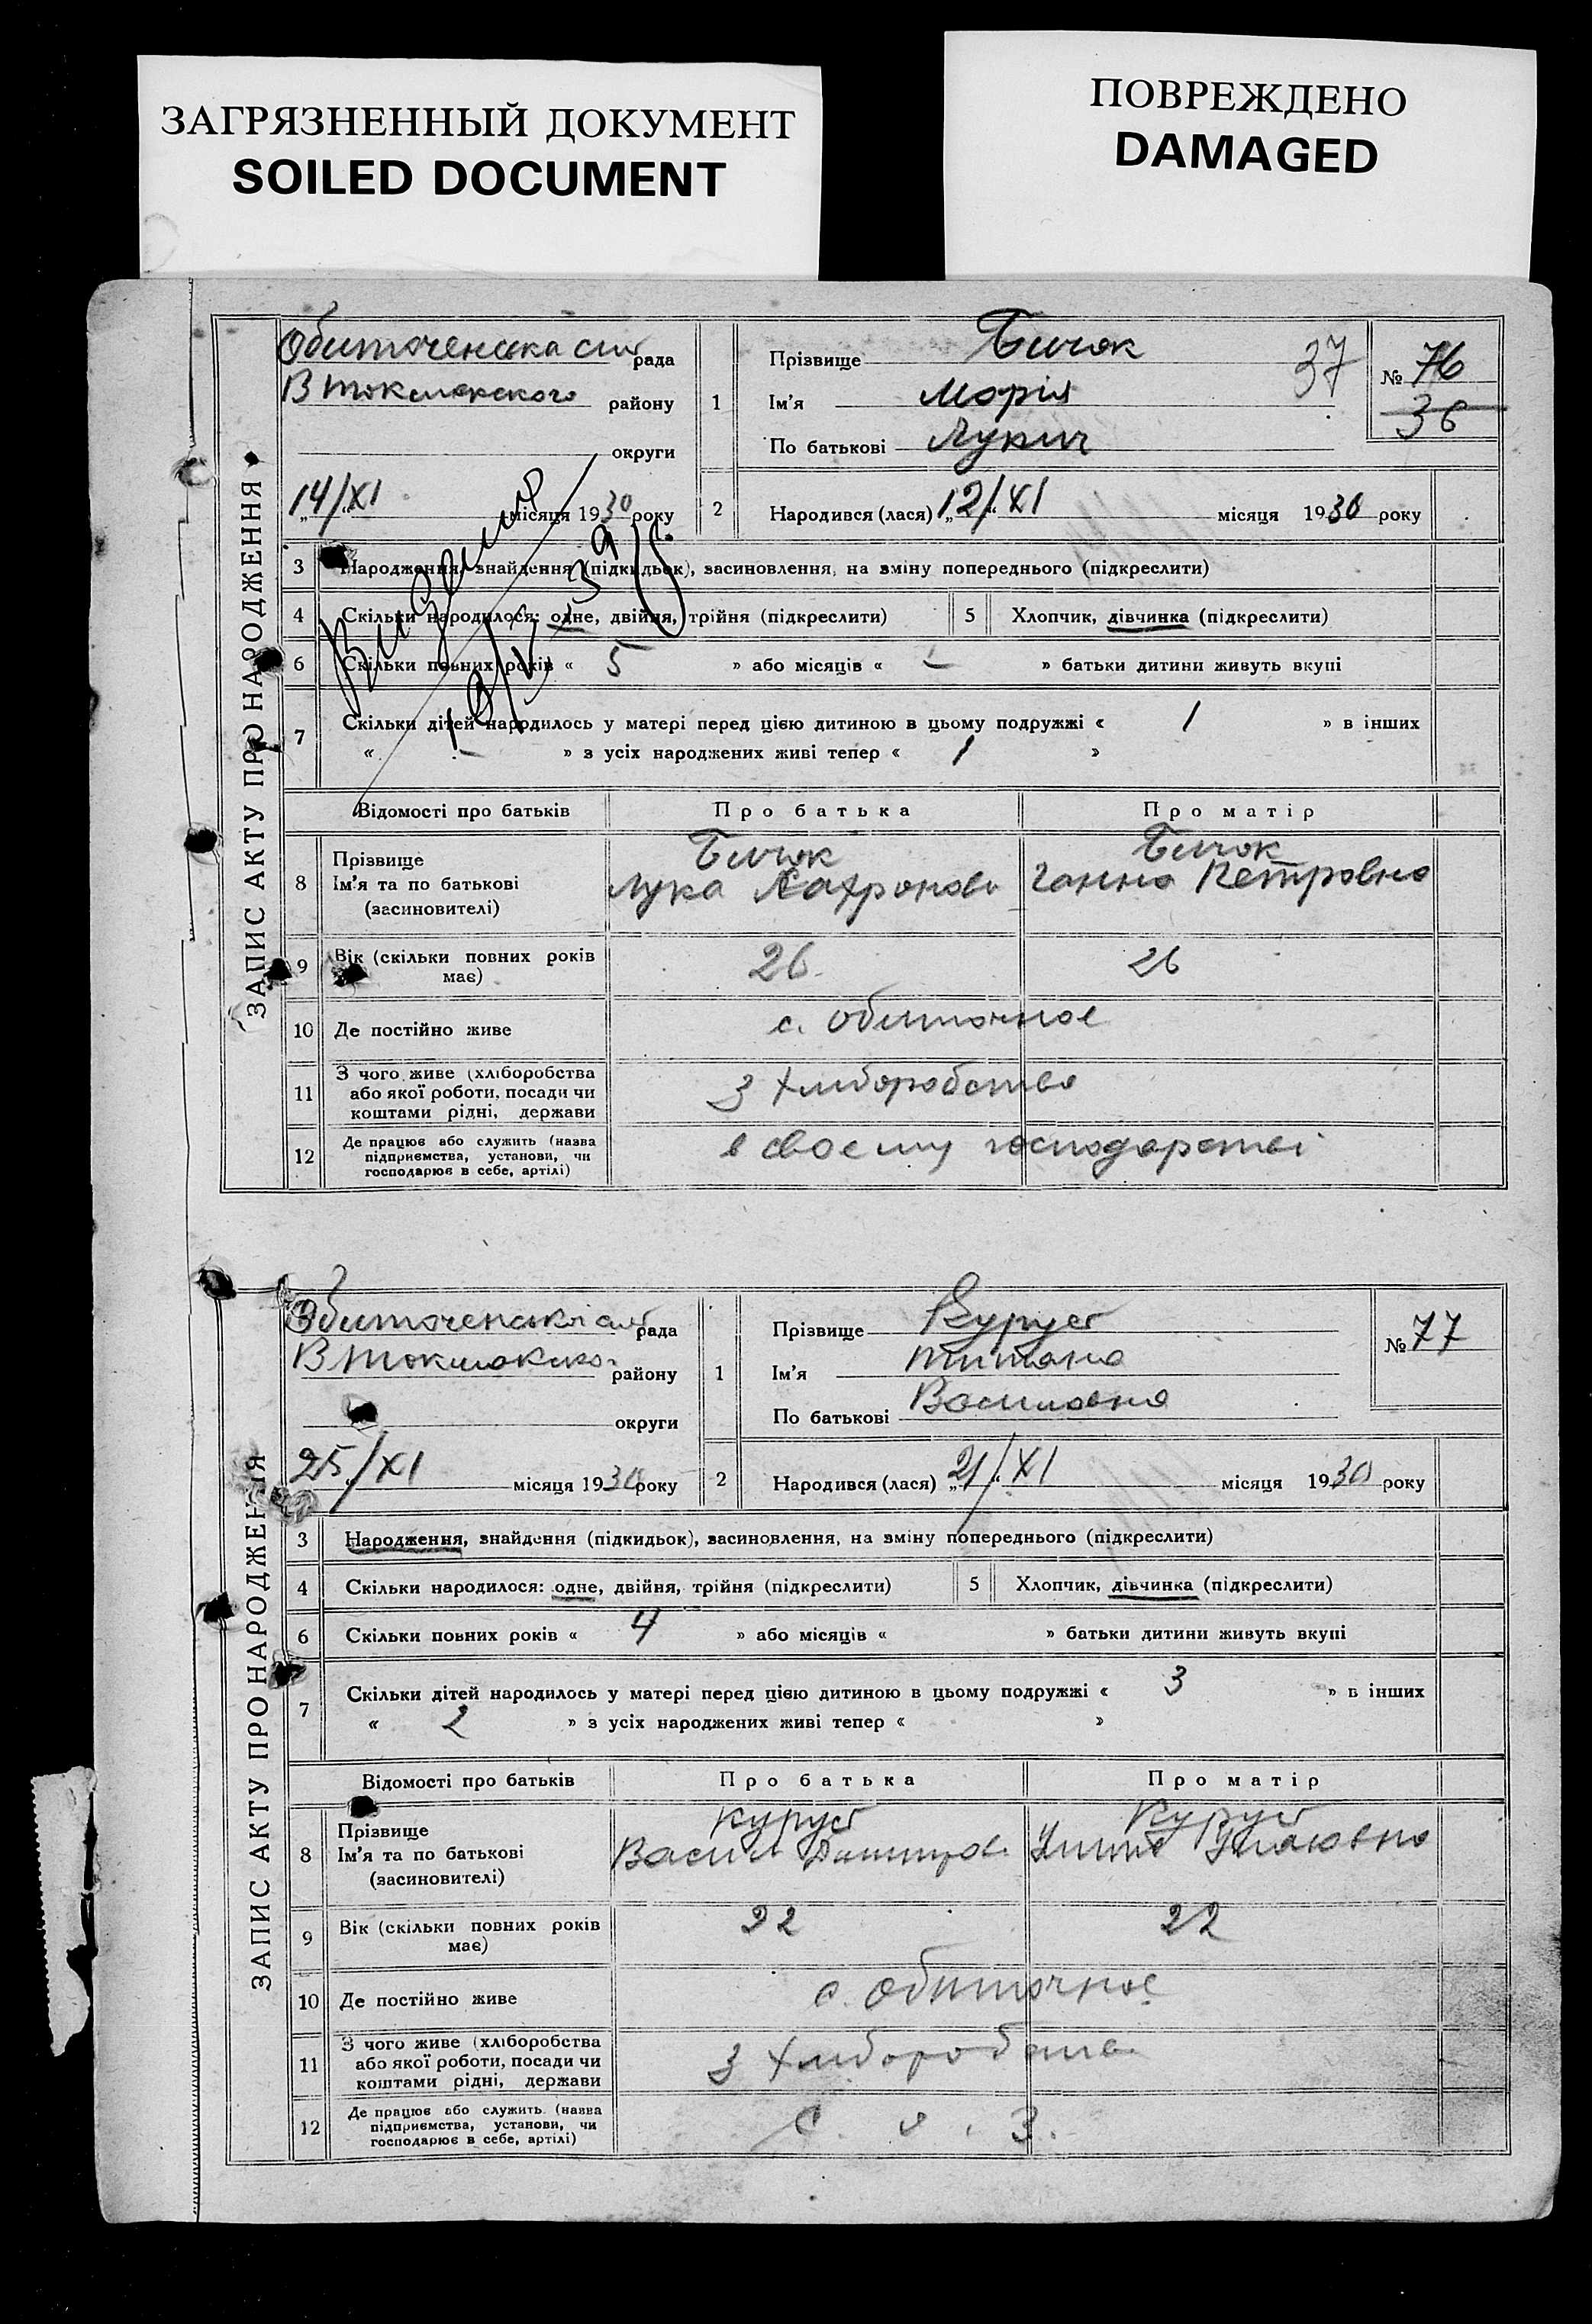 ЗАГРЯЗНЕННЫЙ ДОКУМЕНТ
SOILED DOCUMENT
ПОВРЕЖДЕНО
DAMAGED
ЗАПИС АКТУ ПРО НАРОДЖЕННЯ
Обиточенська рада
В токмакского району
округи
14/XI місяця 1930 року
1
Прізвище Бичок
Ім'я Морія
По батькові Лукич
37
№ 76
36
2 Народився (лася) „12/XI“ місяця 1930 року
3 Народження, знайдення (підкидьок), засиновлення, на зміну попереднього (підкреслити)
4 Скільки народилося: одне, двійня, трійня (підкреслити) 5 Хлопчик, дівчинка (підкреслити)
6 Скільки повних років « 5 » або місяців « – » батьки дитини живуть вкупі
7 Скільки дітей народилось у матері перед цією дитиною в цьому подружжі « 1 » в інших
« – » з усіх народжених живі тепер « 1 »
Відомості про батьків Про батька Про матір
8 Прізвище
Ім'я та по батькові
(засиновителі)
Бичок
Лука
Бичок
Ганна Петровна
9 Вік (скільки повних років має) 26 26
10 Де постійно живе с. Обиточное
11 З чого живе (хліборобства
або якої роботи, посади чи
коштами рідні, держави
З хліборобства
12 Де працює або служить (назва
підприємства, установи, чи
господарює в себе, артілі)
в своему господарстві
ЗАПИС АКТУ ПРО НАРОДЖЕННЯ
рада
району
округи
25/XI місяця 1930 року
1
Прізвище
Ім'я Титана
По батькові Василовна
№ 77
2 Народився (лася) „21/XI“ місяця 1930 року
3 Народження, знайдення (підкидьок), засиновлення, на зміну попереднього (підкреслити)
4 Скільки народилося: одне, двійня, трійня (підкреслити) 5 Хлопчик, дівчинка (підкреслити)
6 Скільки повних років « 4 » або місяців « » батьки дитини живуть вкупі
7 Скільки дітей народилось у матері перед цією дитиною в цьому подружжі « 3 » в інших
« 2 » з усіх народжених живі тепер « »
Відомості про батьків Про батька Про матір
8 Прізвище
Ім'я та по батькові
(засиновителі)
Васил
9 Вік (скільки повних років має) 22 22
10 Де постійно живе с. Обиточное
11 З чого живе (хліборобства
або якої роботи, посади чи
коштами рідні, держави
З хліборобства
12 Де працює або служить (назва
підприємства, установи, чи
господарює в себе, артілі)